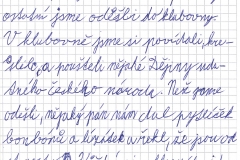 ostatní jsme odešli do klubovny.
V klubovně jsme si povídali, kre-
slili, a pouštěli nějaké Dějiny uda-
tného českého národa. Než jsme
odešli, nějaký pán nám dal pytlíček
bonbónů a lízátek a řekl, že jsou od